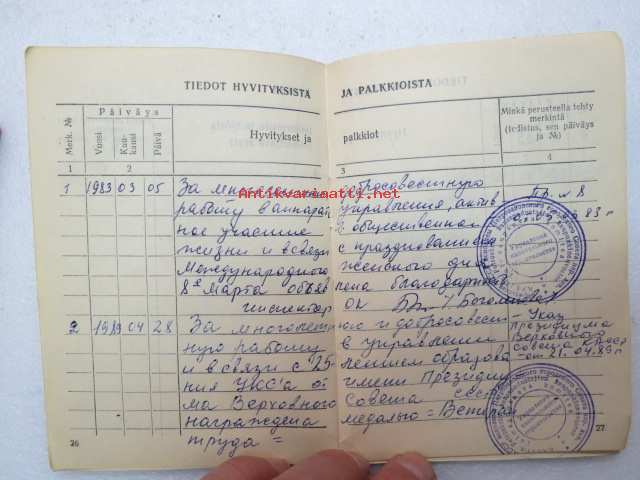 TIEDOT HYVITYKSISTÄ JA PALKKIOISTA
Merk. №
Päiväys
Vuosi
Kuu-
kausi
Päivä
Hyvitykset ja palkkiot
Minkä perusteella tehty
merkintä
(todistus, sen päiväys
ja №)
1 2 3 4
Antikvariaatti.net
1 1983 03 05 За многолетнюю добросовестную
работу в аппарате управления, актив
ное участие в общественной
жизни и в связи с празднованием
Международного женского дня
8е Марта объяв лена благодарность
инспектор ОК
Пр. № 8
83 г
2 1989 04 28 За многолет нюю и добросовест
ную работу в управлении
и в связи с 25- летием образова
ния УКСʼа от имени Президиу
ма Верховного Совета
награждена медалью = Ветеран
труда =
- Указ
Президиума
Верховного
Совета КАССР
от 21.04.89 г
26
27